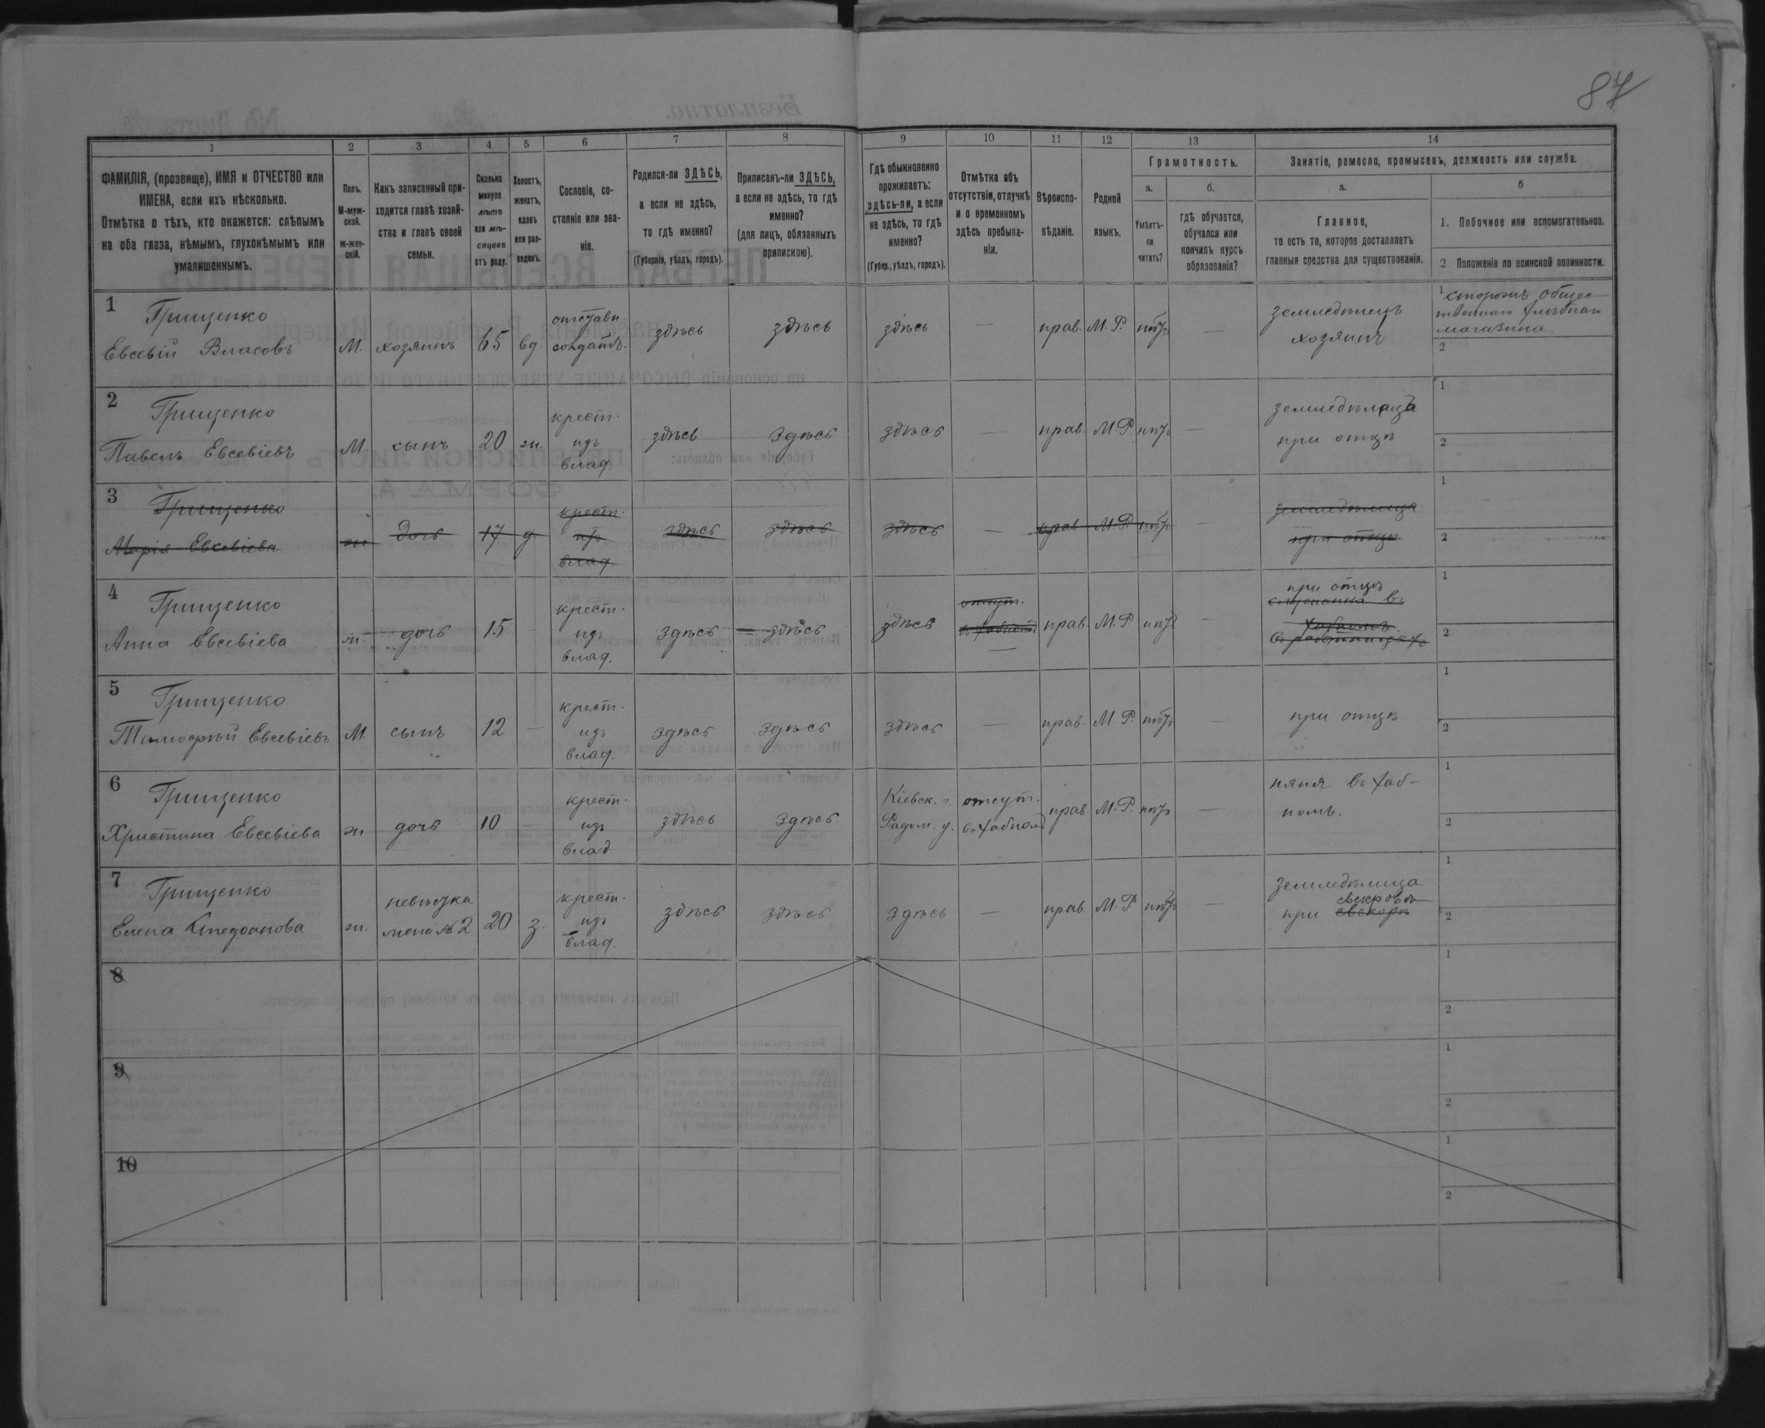 87
1 2 3 4 5 6 7 8 9 10 11 12 13 14
ФАМИЛІЯ, (прозвище), ИМЯ и ОТЧЕСТВО или ИМЕНА, если ихъ нѣсколько.
Отмѣтка о тѣхъ, кто окажется: слѣпымъ на оба глаза, нѣмымъ, глухонѣмымъ или умалишеннымъ.
Полъ.
М-мужской.
Ж-женскій.
Какъ записанный приходится главѣ хозяйства и главѣ своей семьи.
Сколько минуло лѣтъ или мѣсяцевъ отъ роду.
Холостъ, женатъ, вдовъ или разведенъ.
Сословіе, состояніе или званіе.
Родился-ли ЗДѢСЬ, а если не здѣсь, то гдѣ именно?
(Губернія, уѣздъ, городъ).
Приписанъ-ли ЗДѢСЬ, а если не здѣсь, то гдѣ именно?
(для лицъ, обязанныхъ припискою).
Гдѣ обыкновенно проживаетъ: здѣсь-ли, а если не здѣсь, то гдѣ именно?
(Губер., уѣздъ, городъ).
Отмѣтка объ отсутствіи, отлучкѣ и о временномъ здѣсь пребываніи.
Вѣроисповѣданіе.
Родной языкъ.
Грамотность.
а.
Умѣетъ-ли читать?
б.
гдѣ обучается, обучался или кончилъ курсъ образованія?
Занятіе, ремесло, промыселъ, должность или служба.
а.
Главное,
то есть то, которое доставляетъ главныя средства для существованія.
б
1. Побочное или вспомогательное.
2 Положеніе по воинской повинности.
1 Грищенко
Евсевій Власовъ М. хозяинъ 65 вд. отставн. солдатъ. здѣсь здѣсь здѣсь — прав. М.Р. нѣтъ — земледѣлецъ хозяинъ 1 сторожъ общественнаго хлѣбнаго магазина 2
2 Грищенко
Павелъ Евсевіевъ М. сынъ 20 ж. крест. изъ влад. здѣсь здѣсь здѣсь — прав. М.Р. нѣтъ — земледѣлецъ при отцѣ 1 2
3 Грищенко
Марія Евсевіева ж. дочь 17 д. крест. изъ влад. здѣсь здѣсь здѣсь — прав. М.Р. нѣтъ — земледѣлица при отцѣ 1 2
4 Грищенко
Анна Евсевіева ж. дочь 15 — крест. изъ влад. здѣсь здѣсь здѣсь отсут. — прав. М.Р. нѣтъ — при отцѣ 1 2
5 Грищенко
Тимофѣй Евсевіевъ М. сынъ 12 — крест. изъ влад. здѣсь здѣсь здѣсь — прав. М.Р. нѣтъ — при отцѣ 1 2
6 Грищенко
Христина Евсевіева ж. дочь 10 — крест. изъ влад здѣсь здѣсь Кіевск. г. Радом. у. отсут. въ Хабномъ прав. М.Р. нѣтъ — няня въ Хабномъ. 1 2
7 Грищенко
Елена Ѳедоанова ж. невѣстка жена №2 20 з. крест. изъ влад. здѣсь здѣсь здѣсь — прав. М.Р. нѣтъ — земледѣлица при свекровъ 1 2
8 1 2
9 1 2
10 1 2